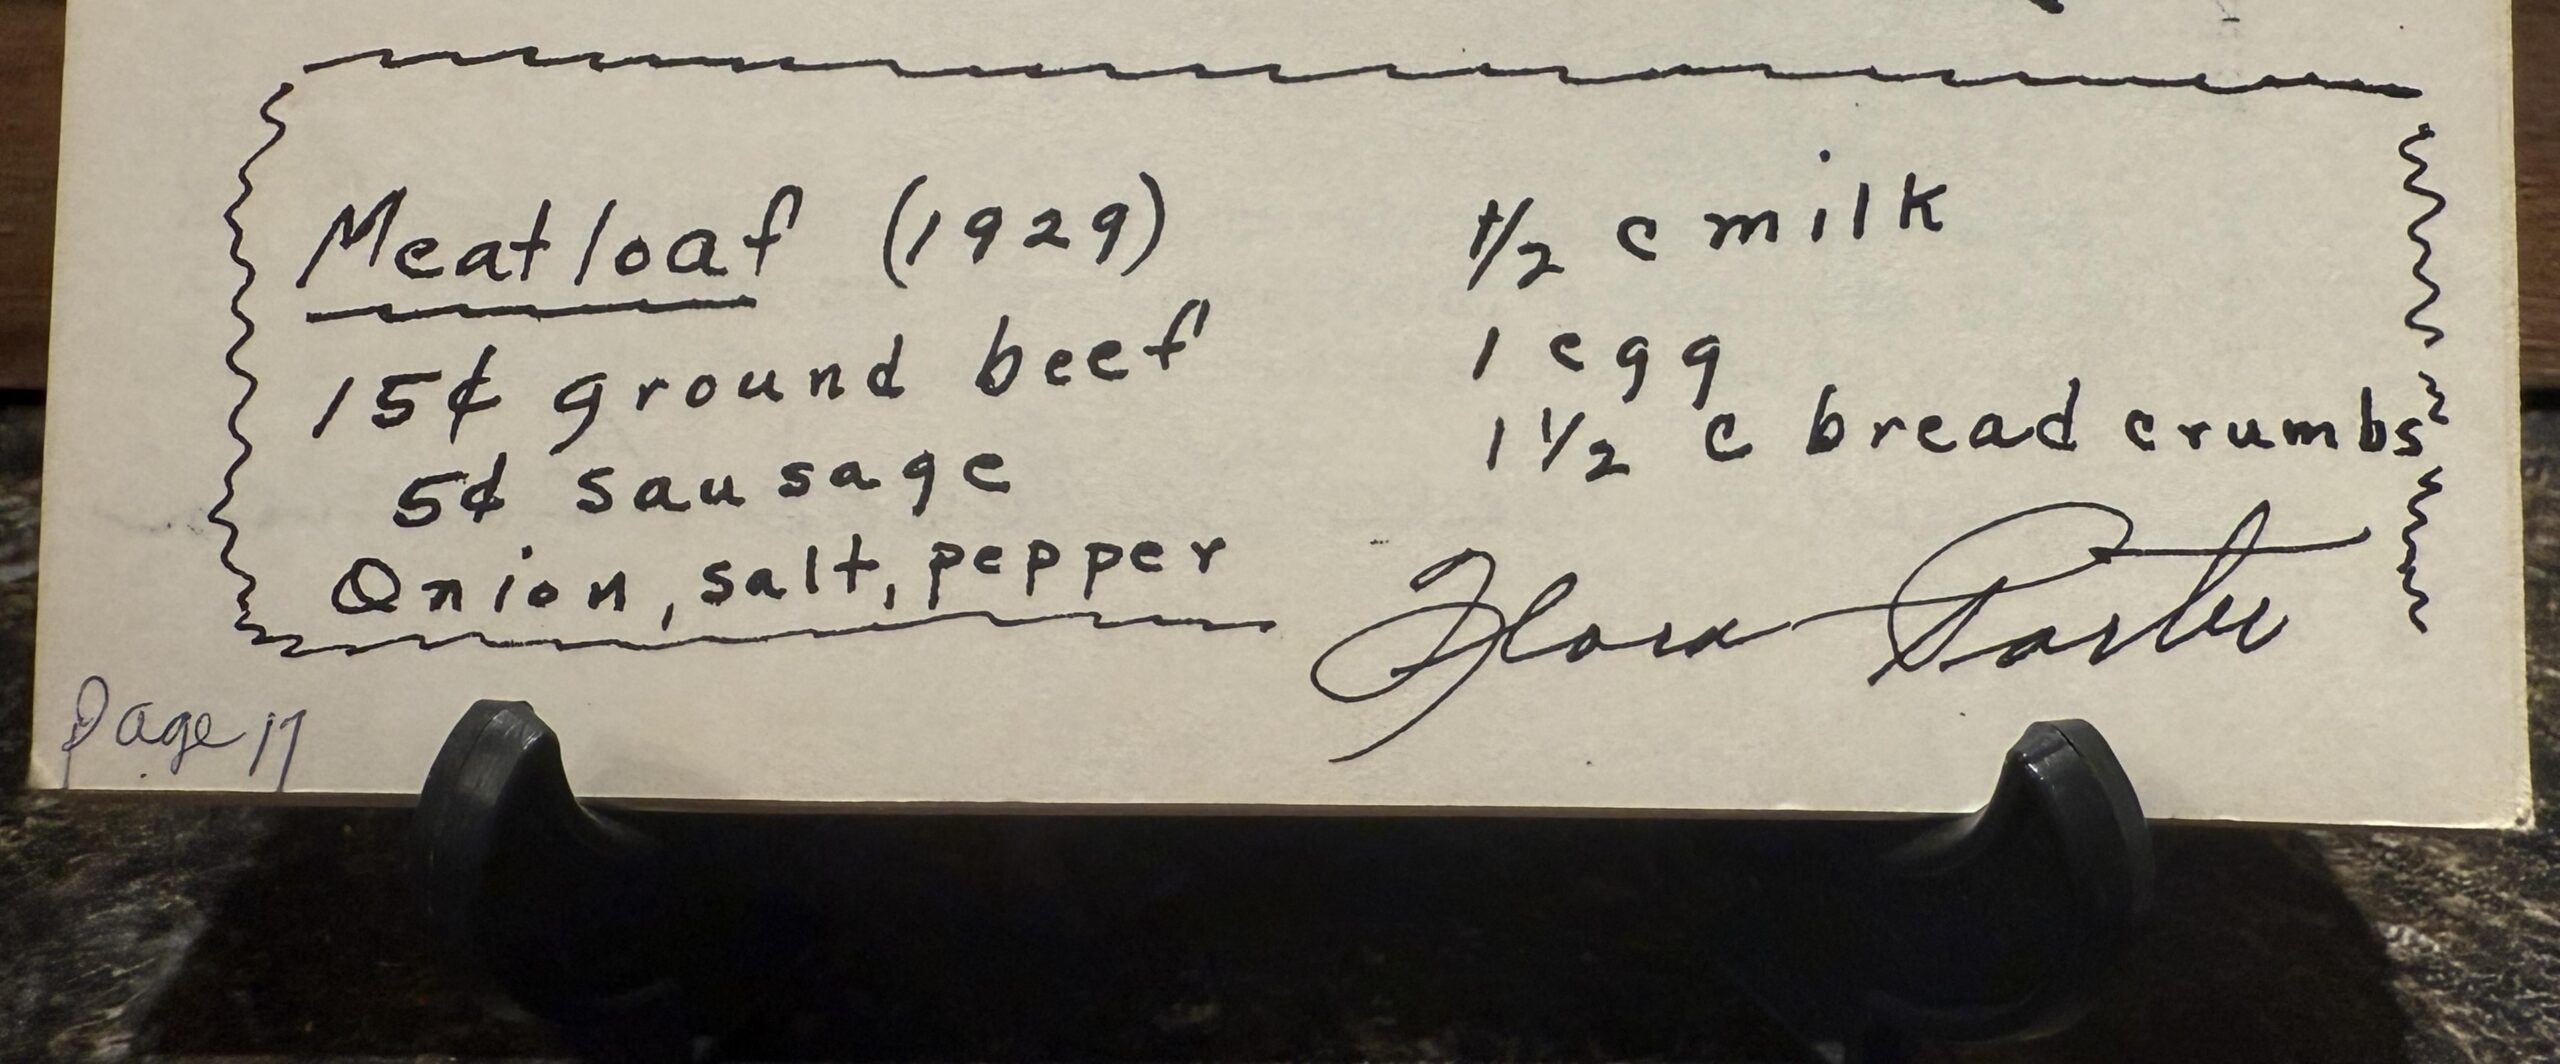 Meatloaf (1929)
15¢ ground beef
5¢ sausage
Onion, salt, pepper
1/2 c milk
1 egg
1 1/2 c bread crumbs
Flora Porter
Page 17